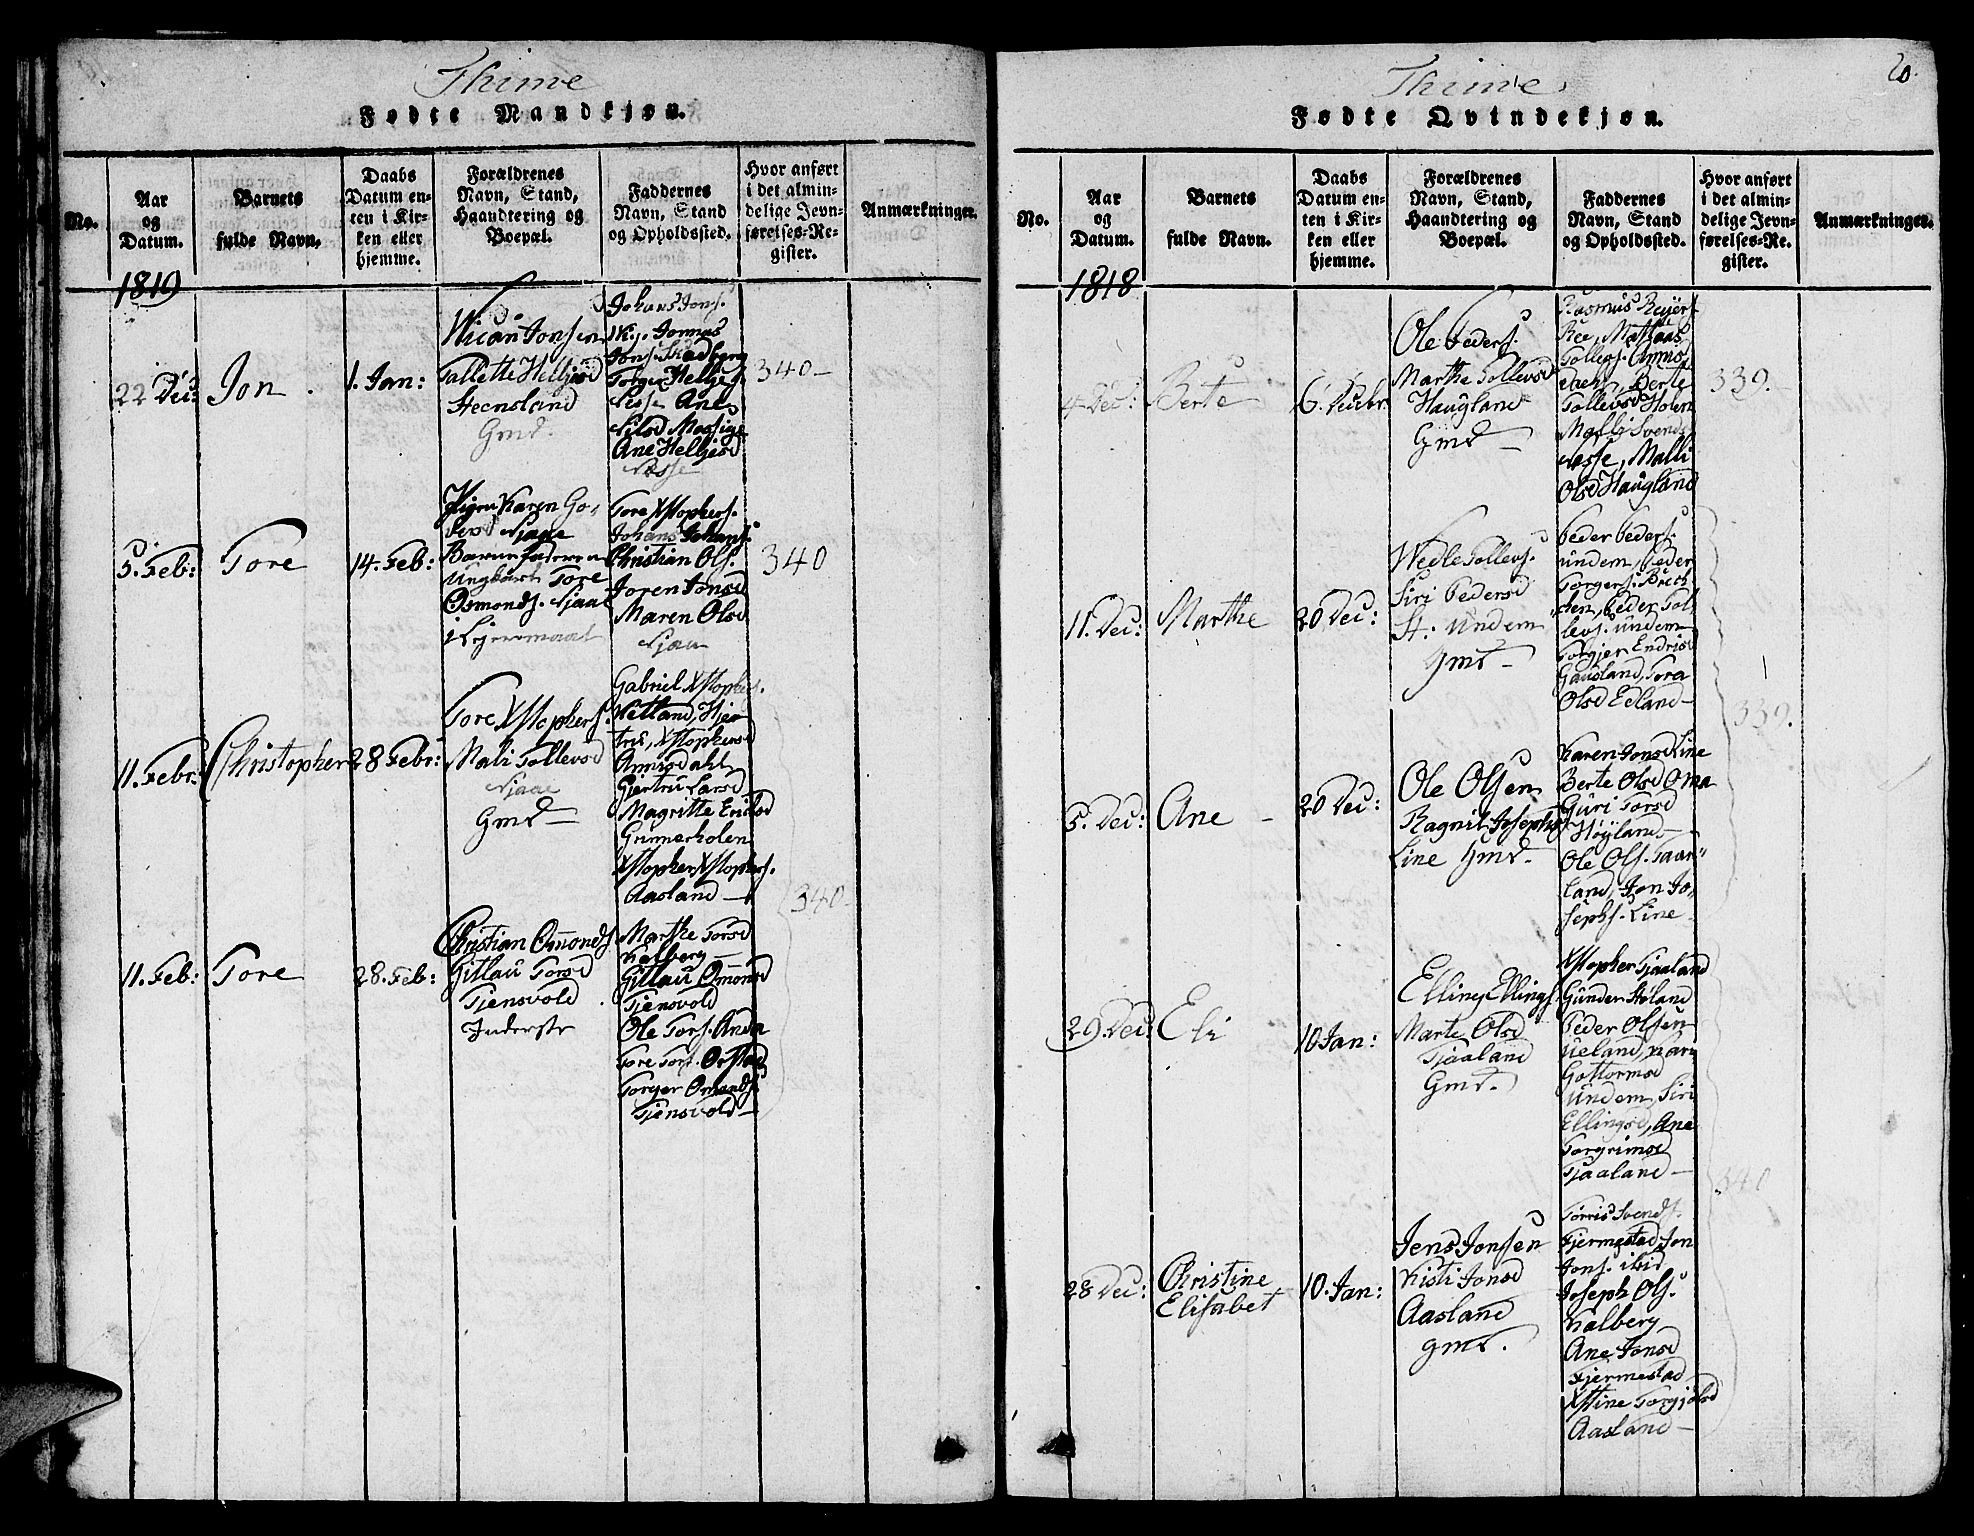 Thime
Fødte Mandkjøn.
No.
Aar
og
Datum.
Barnets
fulde Navn.
Daabs
Datum en-
ten i Kir-
ken eller
hjemme.
Forældrenes
Navn, Stand,
Haandtering og
Boepæl.
Faddernes
Navn, Stand
og Opholdssted.
Hvor anført
i det almin-
delige Jevn-
førelses-Re-
gister.
Anmærkninger.
1819
22 Dec:
Jon
1. Jan:
Jonsen
Tallette Helljesd
Heensland
Gmd.
Johans Jons.
Jonnas
Jons. Skadberg
Torger Helljes.
Nesse Ane
Nilsd Mossige
Ane Helljesd
Nesse
340 —
5. Feb:
Tore
14. Feb:
Pigen Karen Go-
Njaae
Barnefaderen
Ungkarl Tore
Osmonds. Njaae
i Leiermaal
Tore Xstophers.
Johans Johans.
Christian Ols.
Joren Jonsd
Maren Olsd
Njaae
340
11. Febr:
Christopher
28 Febr:
Tore Xstophers.
Mali Tollevsd
Njaae
Gmd —
Gabriel Xstophers.
Netland, Hjer
tru, Xstophersd
Aamsdahl
Gjertru Larsd
Magritte Ericksd
Grimerholen
Xstopher Xstophers.
Aasland —
340
11. Feb:
Tore
28. Feb:
Christian Omonds.
Gitlau Torsd
Tjensvold
Inderste
Marthe Torsd
Kalberg —
Gitlau Omonsd
Tjensvold
Ole Tors. Anda
Tore Tors. Orstad
Torger Omonds.
Tjensvold —
Thime
20
Fødte Qvindekjøn.
No.
Aar
og
Datum.
Barnets
fulde Navn.
Daabs
Datum en-
ten i Kir-
ken eller
hjemme.
Forældrenes
Navn, Stand,
Haandtering og
Boepæl.
Faddernes
Navn, Stand
og Opholdssted.
Hvor anført
i det almin-
delige Jevn-
førelses-Re-
gister.
Anmærkninger.
1818
4 Dec:
Berte
6. Decbr.
Ole Peders.
Marthe Tollevsd
Haugland
Gmd —
Rasmus Reiers.
Ree, Mathias
Tollevs. Anns
dahl, Berte
Tollevsd Holen
Malli Svends
Nesse, Malli
Olsd Haugland
339.
11. Dec:
Marthe
20 Dec:
Wedle Tollevs.
Siri Pedersd
St. Undem
Gmd —
Peder Peders.
undem, Peder
Torgers. Brech
chen, Peder Tol
levs. undem
Torgjer Endrisd
Gausland, Tora
Olsd Edland —
339.
5. Dec:
Ane —
20 Dec:
Ole Olsen
Ragnil Josephsd
Line Gmd.
Karen Jonsd Line
Berte Olsd Oma
Guri Torsd
Høyland —
Ole Ols. Taar-
land, Jon Jo-
sephs. Line
29. Dec:
Eli
10 Jan:
Elling Ellings.
Marte Olsd
Tjaaland
Gmd.
Xstopher Tjaaland
Gunder Høland
Peder Olsen
Ueland, Kari
Gottormsd
Undem, Siri
Ellingsd, Ane
Torgrimsd
Tjaaland —
340
28 Dec:
Christine
Elisabet
10. Jan:
Jens Jonsen
Kisti Jonsd
Aasland
Gmd.
Torris Svends.
Fjermestad Jon
Jons. ibid
Joseph Ols.
Kalberg
Ane Jonsd
Fjermestad
Xstine Torgjølsd
Aasland —